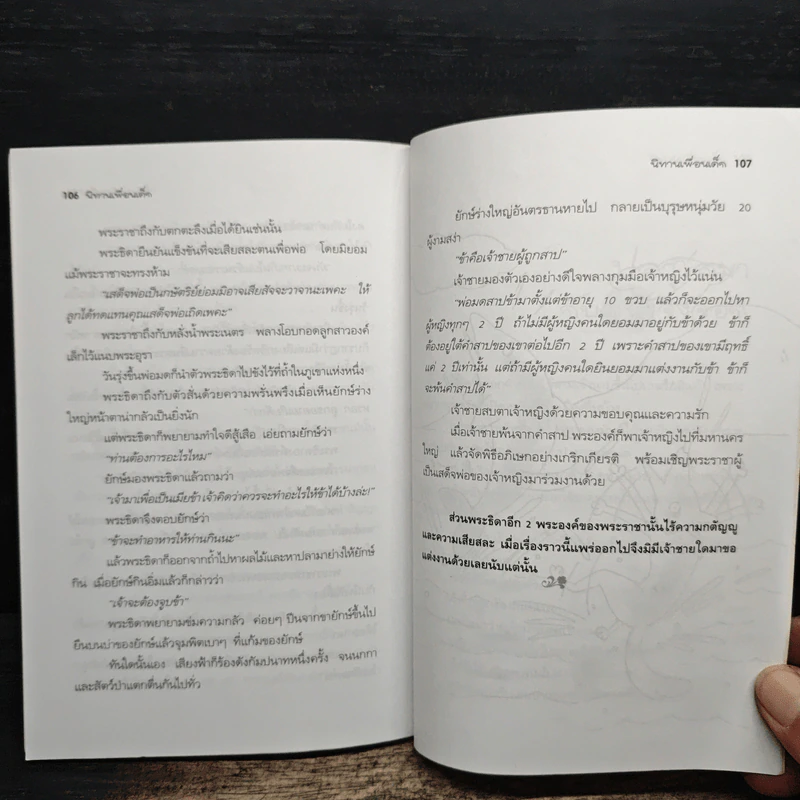 106 นิทานเพื่อนเด็ก
พระราชาถึงกับตกตะลึงเมื่อได้ยินเช่นนั้น
พระธิดายืนยันแข็งขันที่จะเสียสละตนเพื่อพ่อ โดยมิยอม
แม้พระราชาจะทรงห้าม
"เสด็จพ่อเป็นกษัตริย์ย่อมมิอาจเสียสัจจะวาจานะเพคะ ให้
ลูกได้ทดแทนคุณเสด็จพ่อเถิดเพคะ"
พระราชาถึงกับหลั่งน้ำพระเนตร พลางโอบกอดลูกสาวองค์
เล็กไว้แนบพระอุรา
วันรุ่งขึ้นพ่อมดก็นำตัวพระธิดาไปขังไว้ที่ถ้ำในภูเขาแห่งหนึ่ง
พระธิดาถึงกับตัวสั่นด้วยความพรั่นพรึงเมื่อเห็นยักษ์ร่าง
ใหญ่หน้าตาน่ากลัวเป็นยิ่งนัก
แต่พระธิดาก็พยายามทำใจดีสู้เสือ เอ่ยถามยักษ์ว่า
"ท่านต้องการอะไรไหม"
ยักษ์มองพระธิดาแล้วถามว่า
"เจ้ามาเพื่อเป็นเมียข้า เจ้าคิดว่าควรจะทำอะไรให้ข้าได้บ้างล่ะ!"
พระธิดาจึงตอบยักษ์ว่า
"ข้าจะทำอาหารให้ท่านกินนะ"
แล้วพระธิดาก็ออกจากถ้ำไปหาผลไม้และหาปลามาย่างให้ยักษ์
กิน เมื่อยักษ์กินอิ่มแล้วก็กล่าวว่า
"เจ้าจะต้องจูบข้า"
พระธิดาพยายามข่มความกลัว ค่อยๆ ปีนจากขายักษ์ขึ้นไป
ยืนบนบ่าของยักษ์แล้วจุมพิตเบาๆ ที่แก้มของยักษ์
ทันใดนั้นเอง เสียงฟ้าก็ร้องดังกัมปนาทหนึ่งครั้ง จนนกกา
และสัตว์ป่าแตกตื่นกันไปทั่ว
นิทานเพื่อนเด็ก 107
ยักษ์ร่างใหญ่อันตรธานหายไป กลายเป็นบุรุษหนุ่มวัย 20
ผู้งามสง่า
"ข้าคือเจ้าชายผู้ถูกสาป"
เจ้าชายมองตัวเองอย่างดีใจพลางกุมมือเจ้าหญิงไว้แน่น
"พ่อมดสาปข้ามาตั้งแต่ข้าอายุ 10 ขวบ แล้วก็จะออกไปหา
ผู้หญิงทุกๆ 2 ปี ถ้าไม่มีผู้หญิงคนใดยอมมาอยู่กับข้าด้วย ข้าก็
ต้องอยู่ใต้คำสาปของเขาต่อไปอีก 2 ปี เพราะคำสาปของเขามีฤทธิ์
แค่ 2 ปีเท่านั้น แต่ถ้ามีผู้หญิงคนใดยินยอมมาแต่งงานกับข้า ข้าก็
จะพ้นคำสาปได้"
เจ้าชายสบตาเจ้าหญิงด้วยความขอบคุณและความรัก
เมื่อเจ้าชายพ้นจากคำสาป พระองค์ก็พาเจ้าหญิงไปที่มหานคร
ใหญ่ แล้วจัดพิธีอภิเษกอย่างเกริกเกียรติ พร้อมเชิญพระราชาผู้
เป็นเสด็จพ่อของเจ้าหญิงมาร่วมงานด้วย
ส่วนพระธิดาอีก 2 พระองค์ของพระราชานั้นไร้ความกตัญญู
และความเสียสละ เมื่อเรื่องราวนี้แพร่ออกไปจึงมิมีเจ้าชายใดมาขอ
แต่งงานด้วยเลยนับแต่นั้น